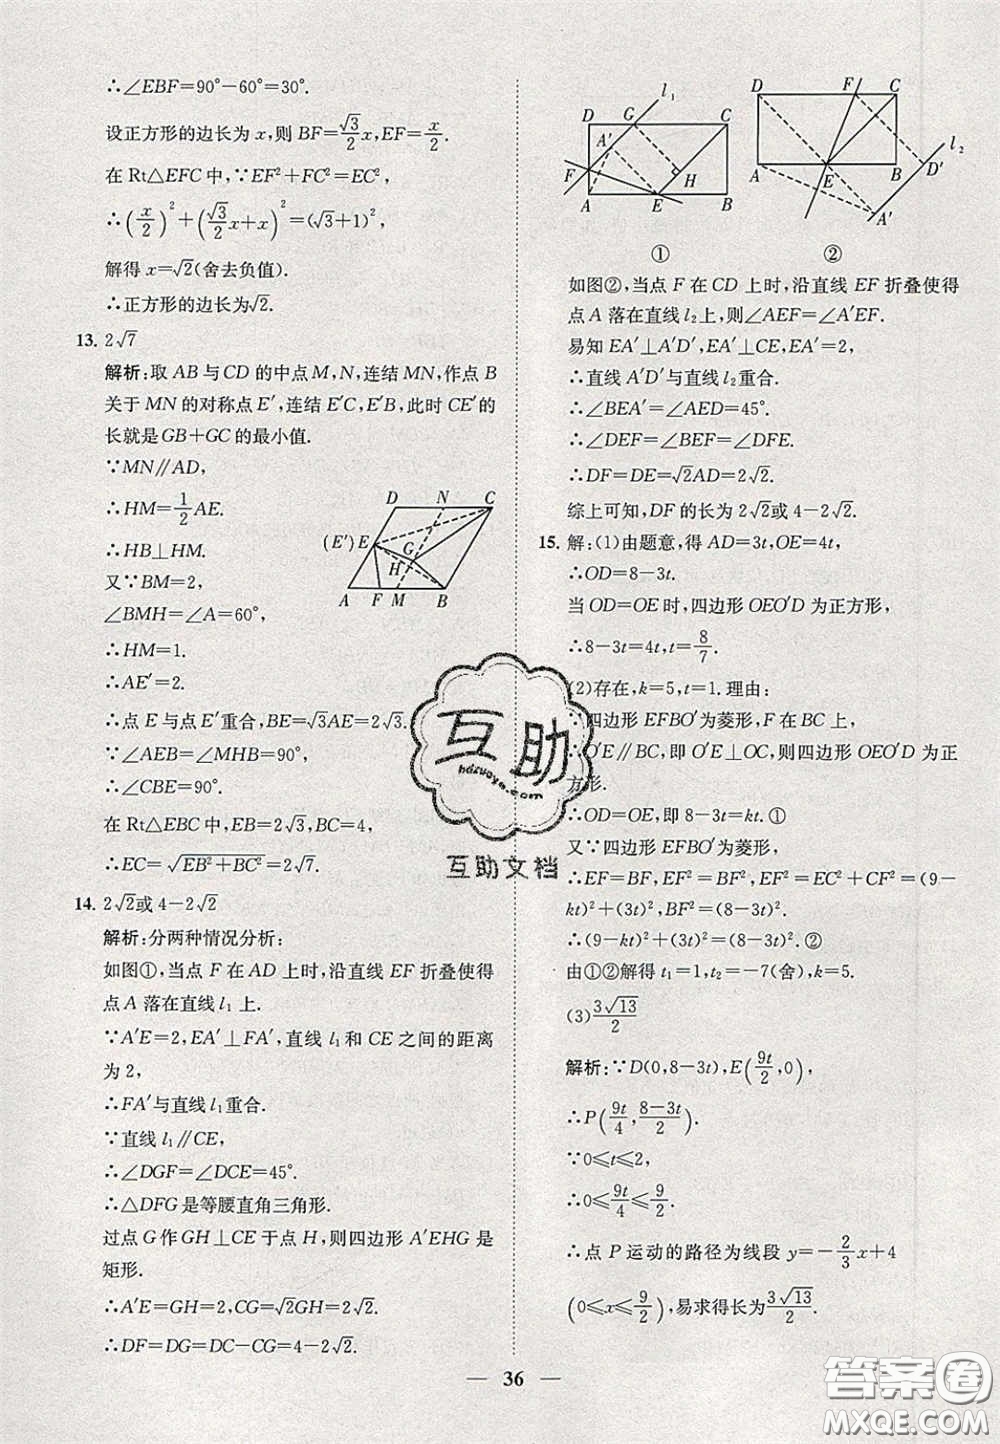 ∴∠EBF=90°-60°=30°.
设正方形的边长为 x,则 BF=√3/2 x,EF=x/2.
在 Rt△EFC 中,∵EF²+FC²=EC²,
∴(x/2)²+(√3/2 x+x)²=(√3+1)²,
解得 x=√2(舍去负值).
∴正方形的边长为√2.
13. 2√7
解析:取 AB 与 CD 的中点 M,N,连结 MN,作点 B
关于 MN 的对称点 E′,连结 E′C,E′B,此时 CE′的
长就是 GB+GC 的最小值.
∵MN∥AD,
∴HM=1/2 AE.
∴HB⊥HM.
又∵BM=2,
∠BMH=∠A=60°,
∴HM=1.
∴AE′=2.
∴点 E 与点 E′重合,BE=√3AE=2√3.
∵∠AEB=∠MHB=90°,
∴∠CBE=90°.
在 Rt△EBC 中,EB=2√3,BC=4,
∴EC=√(EB²+BC²)=2√7.
D N C
(E′) E
G
H
A F M B
14. 2√2或 4-2√2
解析:分两种情况分析:
如图①,当点 F 在 AD 上时,沿直线 EF 折叠使得
点 A 落在直线 l₁ 上.
∵A′E=2,EA′⊥FA′,直线 l₁ 和 CE 之间的距离
为 2,
∴FA′与直线 l₁ 重合.
∵直线 l₁∥CE,
∴∠DGF=∠DCE=45°.
∴△DFG 是等腰直角三角形.
过点 G 作 GH⊥CE 于点 H,则四边形 A′EHG 是
矩形.
∴A′E=GH=2,CG=√2GH=2√2.
∴DF=DG=DC-CG=4-2√2.
D G l₁ C
A′
F H
A E B
①
D F C
l₂
A E B D′
A′
②
如图②,当点 F 在 CD 上时,沿直线 EF 折叠使得
点 A 落在直线 l₂ 上,则∠AEF=∠A′EF.
易知 EA′⊥A′D′,EA′⊥CE,EA′=2,
∴直线 A′D′与直线 l₂ 重合.
∴∠BEA′=∠AED=45°.
∴∠DEF=∠BEF=∠DFE.
∴DF=DE=√2AD=2√2.
综上可知,DF 的长为 2√2或 4-2√2.
15. 解:(1)由题意,得 AD=3t,OE=4t,
∴OD=8-3t.
当 OD=OE 时,四边形 OEO′D 为正方形,
∴8-3t=4t,t=8/7.
(2)存在,k=5,t=1.理由:
∵四边形 EFBO′为菱形,F 在 BC 上,
∴O′E∥BC,即 O′E⊥OC,则四边形 OEO′D 为正
方形.
∴OD=OE,即 8-3t=kt. ①
又∵四边形 EFBO′为菱形,
∴EF=BF,EF²=BF²,EF²=EC²+CF²=(9-
kt)²+(3t)²,BF²=(8-3t)².
∴(9-kt)²+(3t)²=(8-3t)². ②
由①②解得 t₁=1,t₂=-7(舍),k=5.
(3) 3√13/2
解析:∵D(0,8-3t),E(9t/2,0),
∴P(9t/4,(8-3t)/2).
∵0≤t≤2,
∴0≤9t/4≤9/2.
∴点 P 运动的路径为线段 y=-2/3 x+4
(0≤x≤9/2),易求得长为3√13/2.
互助
hdzuoye.com
互助文档
36
答案圈
MXQE.COM